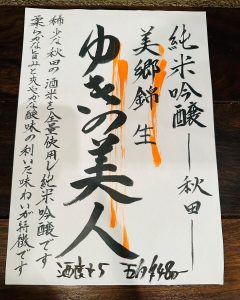 純米吟醸 ― 秋田 ―
美郷錦 生
ゆきの美人
稀少な秋田の酒米を全量使用し純米吟醸です
柔らかな旨止と爽やかな酸味の利いた味わいが特徴です
酒度+5